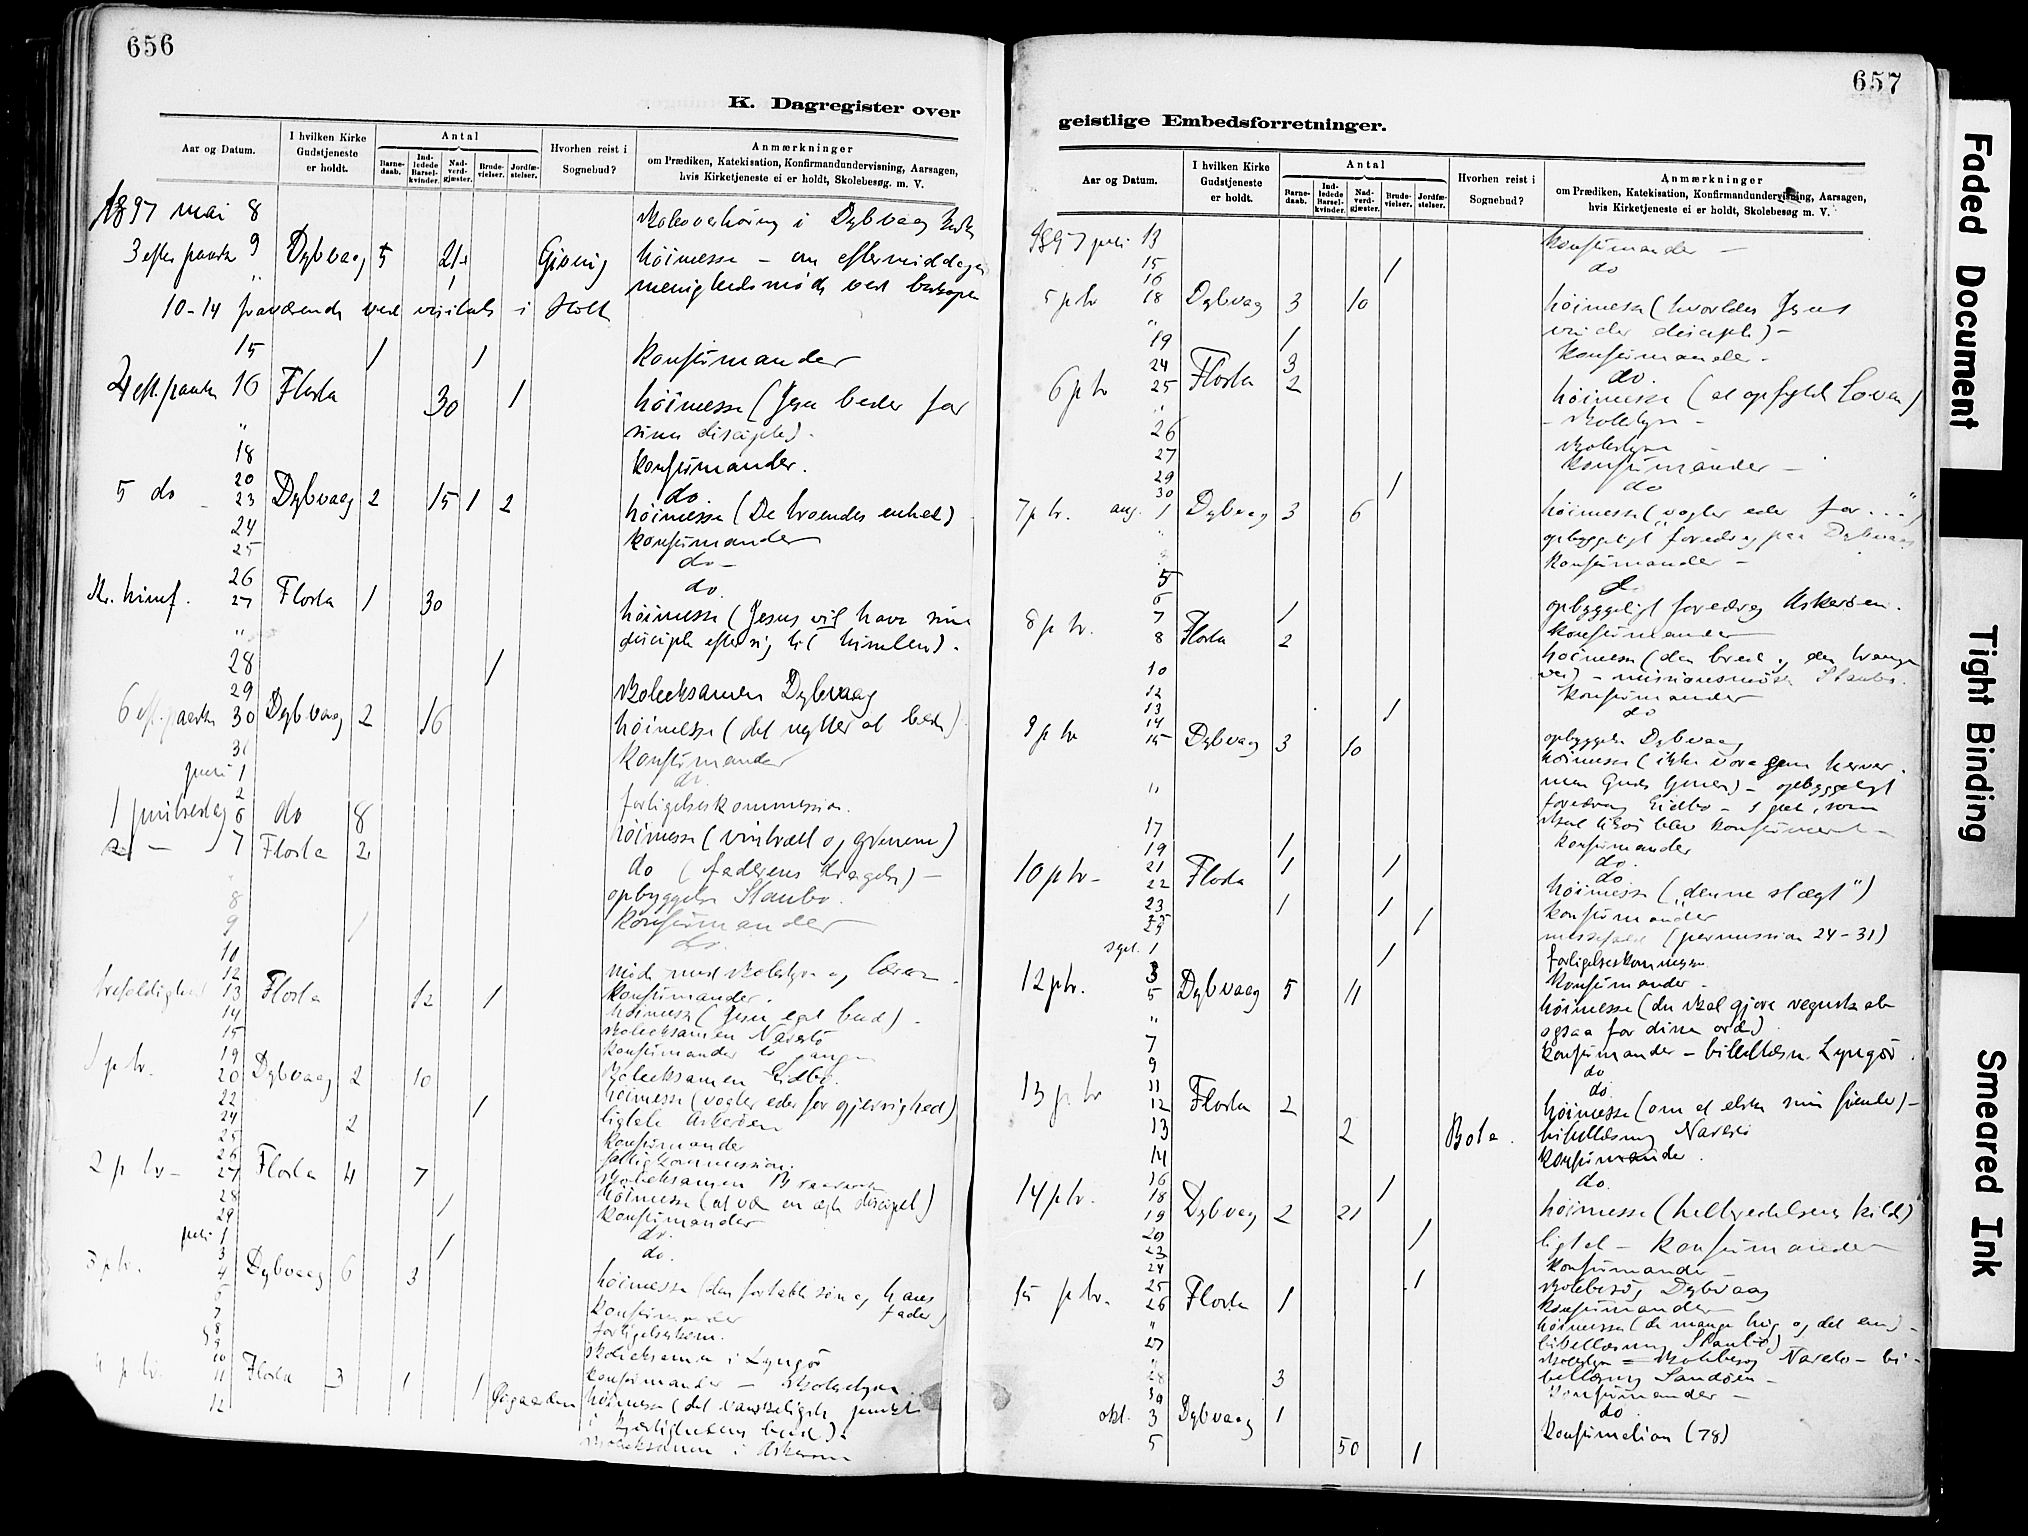 656
K. Dagregister over
Aar og Datum.
I hvilken Kirke Gudstjeneste er holdt.
Antal
Barne-daab.
Ind-ledede Barsel-kvinder.
Nad-verd-gjæster.
Brude-vielser.
Jordfæ-stelser.
Hvorhen reist i Sognebud?
Anmærkninger
om Prædiken, Katekisation, Konfirmandundervisning, Aarsagen,
hvis Kirketjeneste ei er holdt, Skolebesøg. m. V.
1897 mai 8 Skoleoverhøring i Dybvaag
3 efter paaske 9 Dybvaag 5 21 Gjøving høimesse – om eftermiddagen
" 1 menighedsmøde ved biskopen
10–14 fraværende ved visitats i Holt
15 1 1 Konfirmander
4 eft. paaske 16 Flosta 30 1 høimesse (Jesu beder for
" sine disciple).
18 Konfirmander.
20 do.
5 do – 23 Dybvaag 2 15 1 2 høimesse (De troendes enhed)
24 Konfirmander
25 do –
26 do.
Kr. himf. 27 Flosta 1 30 høimesse (Jesus vil have sine
" disciple efter sig til himlen).
28 1
29 Skoleeksamen Dybvaag
6 eft. paaske 30 Dybvaag 2 16 høimesse (det nytter at bede)
31 Konfirmander
juni 1 do
2 forligelseskommission.
1 pintsedag 6 do 8 høimesse (vintræet og grenene)
2 – 7 Flosta 2 do (faderens
" opbyggelse Staubø.
8 Konfirmander
9 1 do.
10 møde med skolestyre og
12 Konfirmander.
trefoldighed 13 Flosta 12 1 høimesse (Jesu
14 Skoleeksamen Narestø
15 Konfirmander
19 Skoleeksamen Eidbo.
1 p tr. 20 Dybvaag 2 10 høimesse (vogter eder for gjerrighed)
22 1 ligtale Askerøen
24 2 Konfirmander
25
26 Skoleeksamen
2 p tr – 27 Flosta 4 7 høimesse (at være en ægte discipel)
28 Konfirmander
29 1 do.
juli 1 do.
3 1
3 p tr. 4 Dybvaag 6 3 høimesse (den fortabte søn og hans fader)
6 Konfirmander
7 forligelseskom.
8 skoleeksamen i Lyngør
9 Konfirmander – skolestyre
10
4 p tr. 11 Flosta 3 1 1 høimesse (det vanskeligste punkt
12 i kjærlighedens bud).
Skoleeksamen i Askerøen
657
geistlige Embedsforretninger.
Aar og Datum.
I hvilken Kirke Gudstjeneste er holdt.
Antal
Barne-daab.
Ind-ledede Barsel-kvinder.
Nad-verd-gjæster.
Brude-vielser.
Jordfæ-stelser.
Hvorhen reist i Sognebud?
Anmærkninger
om Prædiken, Katekisation, Konfirmandundervisning, Aarsagen,
hvis Kirketjeneste ei er holdt, Skolebesøg m. V.
1897 juli 13 Konfirmander –
15 1 do
16
5 p tr 18 Dybvaag 3 10 høimesse (hvorledes Jesus
" vinder disciple) –
19 1 Konfirmander.
24 3 do.
6 p tr 25 Flosta 2 høimesse (at opfylde loven)
" – skolestyre –
26 skolestyre
27 Konfirmander –
29 1 do
30
7 p tr. aug. 1 Dybvaag 3 6 høimesse (vogter eder for . . .")
" opbyggeligt foredrag paa Dybvaag
Konfirmander –
5 do
6 1 opbyggeligt foredrag Askerøen.
7 Konfirmander
8 p tr. 8 Flosta 2 høimesse (den brede og den trange
vei) – missionsmøde Staubø.
10 Konfirmander
12 1 do
13
14 opbyggelse Dybvaag
9 p tr 15 Dybvaag 3 10 høimesse (ikke være
" opbyggeligt
foredrag Eidbo –
blev konfirmeret –
17 Konfirmander
19 1 do.
21 1 1 do.
10 p tr – 22 Flosta høimesse („denne slægt")
23 1 1 Konfirmander
25 1 messefald (permission 24–31)
29
sept. 1 1 forligelseskommission
3 Konfirmander.
12 p tr. 5 Dybvaag 5 11 høimesse (du skal gjøre regnskab
" ogsaa for dine ord)
7 Konfirmander – bibellæsn. Lyngør.
9 do
11 do.
13 p. tr 12 Flosta 2 høimesse (om at elske sine fiender) –
13 2 Bota. bibellæsning Narestø
14 Konfirmander.
16 do.
14 p tr. 18 1
19 Dybvaag 2 21 høimesse (helbredelsens kilde)
20 1 ligtal – Konfirmander
23 Konfirmander
24 1 skolebesøg Dybvaag
25 Konfirmander
15 p tr. 26 Flosta 1 høimesse (de mange ting og det ene) –
" bibellæsning Staubø)
27 skolestyre – skolebesøg Narestø – bi-
" bellæsning Sandøen –
28 3 Konfirmander –
30 do
okt. 3 Dybvaag 1 Konfirmation (78)
5 50 1
Faded Document
Tight Binding
Smeared Ink